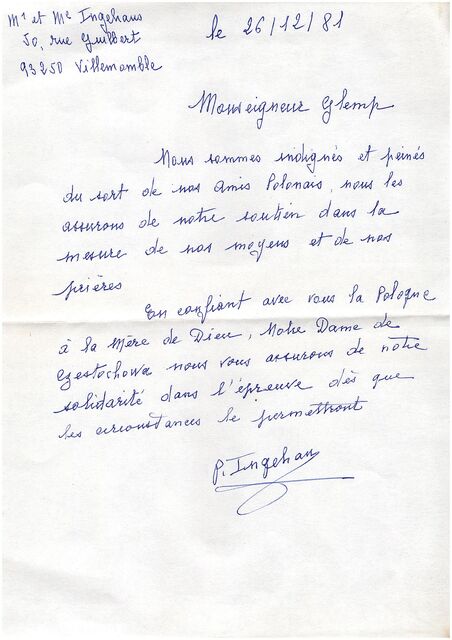 Mr et Me Ingehans
50, rue Guilbert
93250 Villemomble
le 26/12/81
Monseigneur Glemp
Nous sommes indignés et peinés
du sort de nos amis Polonais, nous les
assurons de notre soutien dans la
mesure de nos moyens et de nos
prières
En confiant avec vous la Pologne
à la Mère de Dieu, Notre Dame de
Czestochowa nous vous assurons de notre
solidarité dans l'épreuve dès que
les circonstances le permettront
P. Ingehans